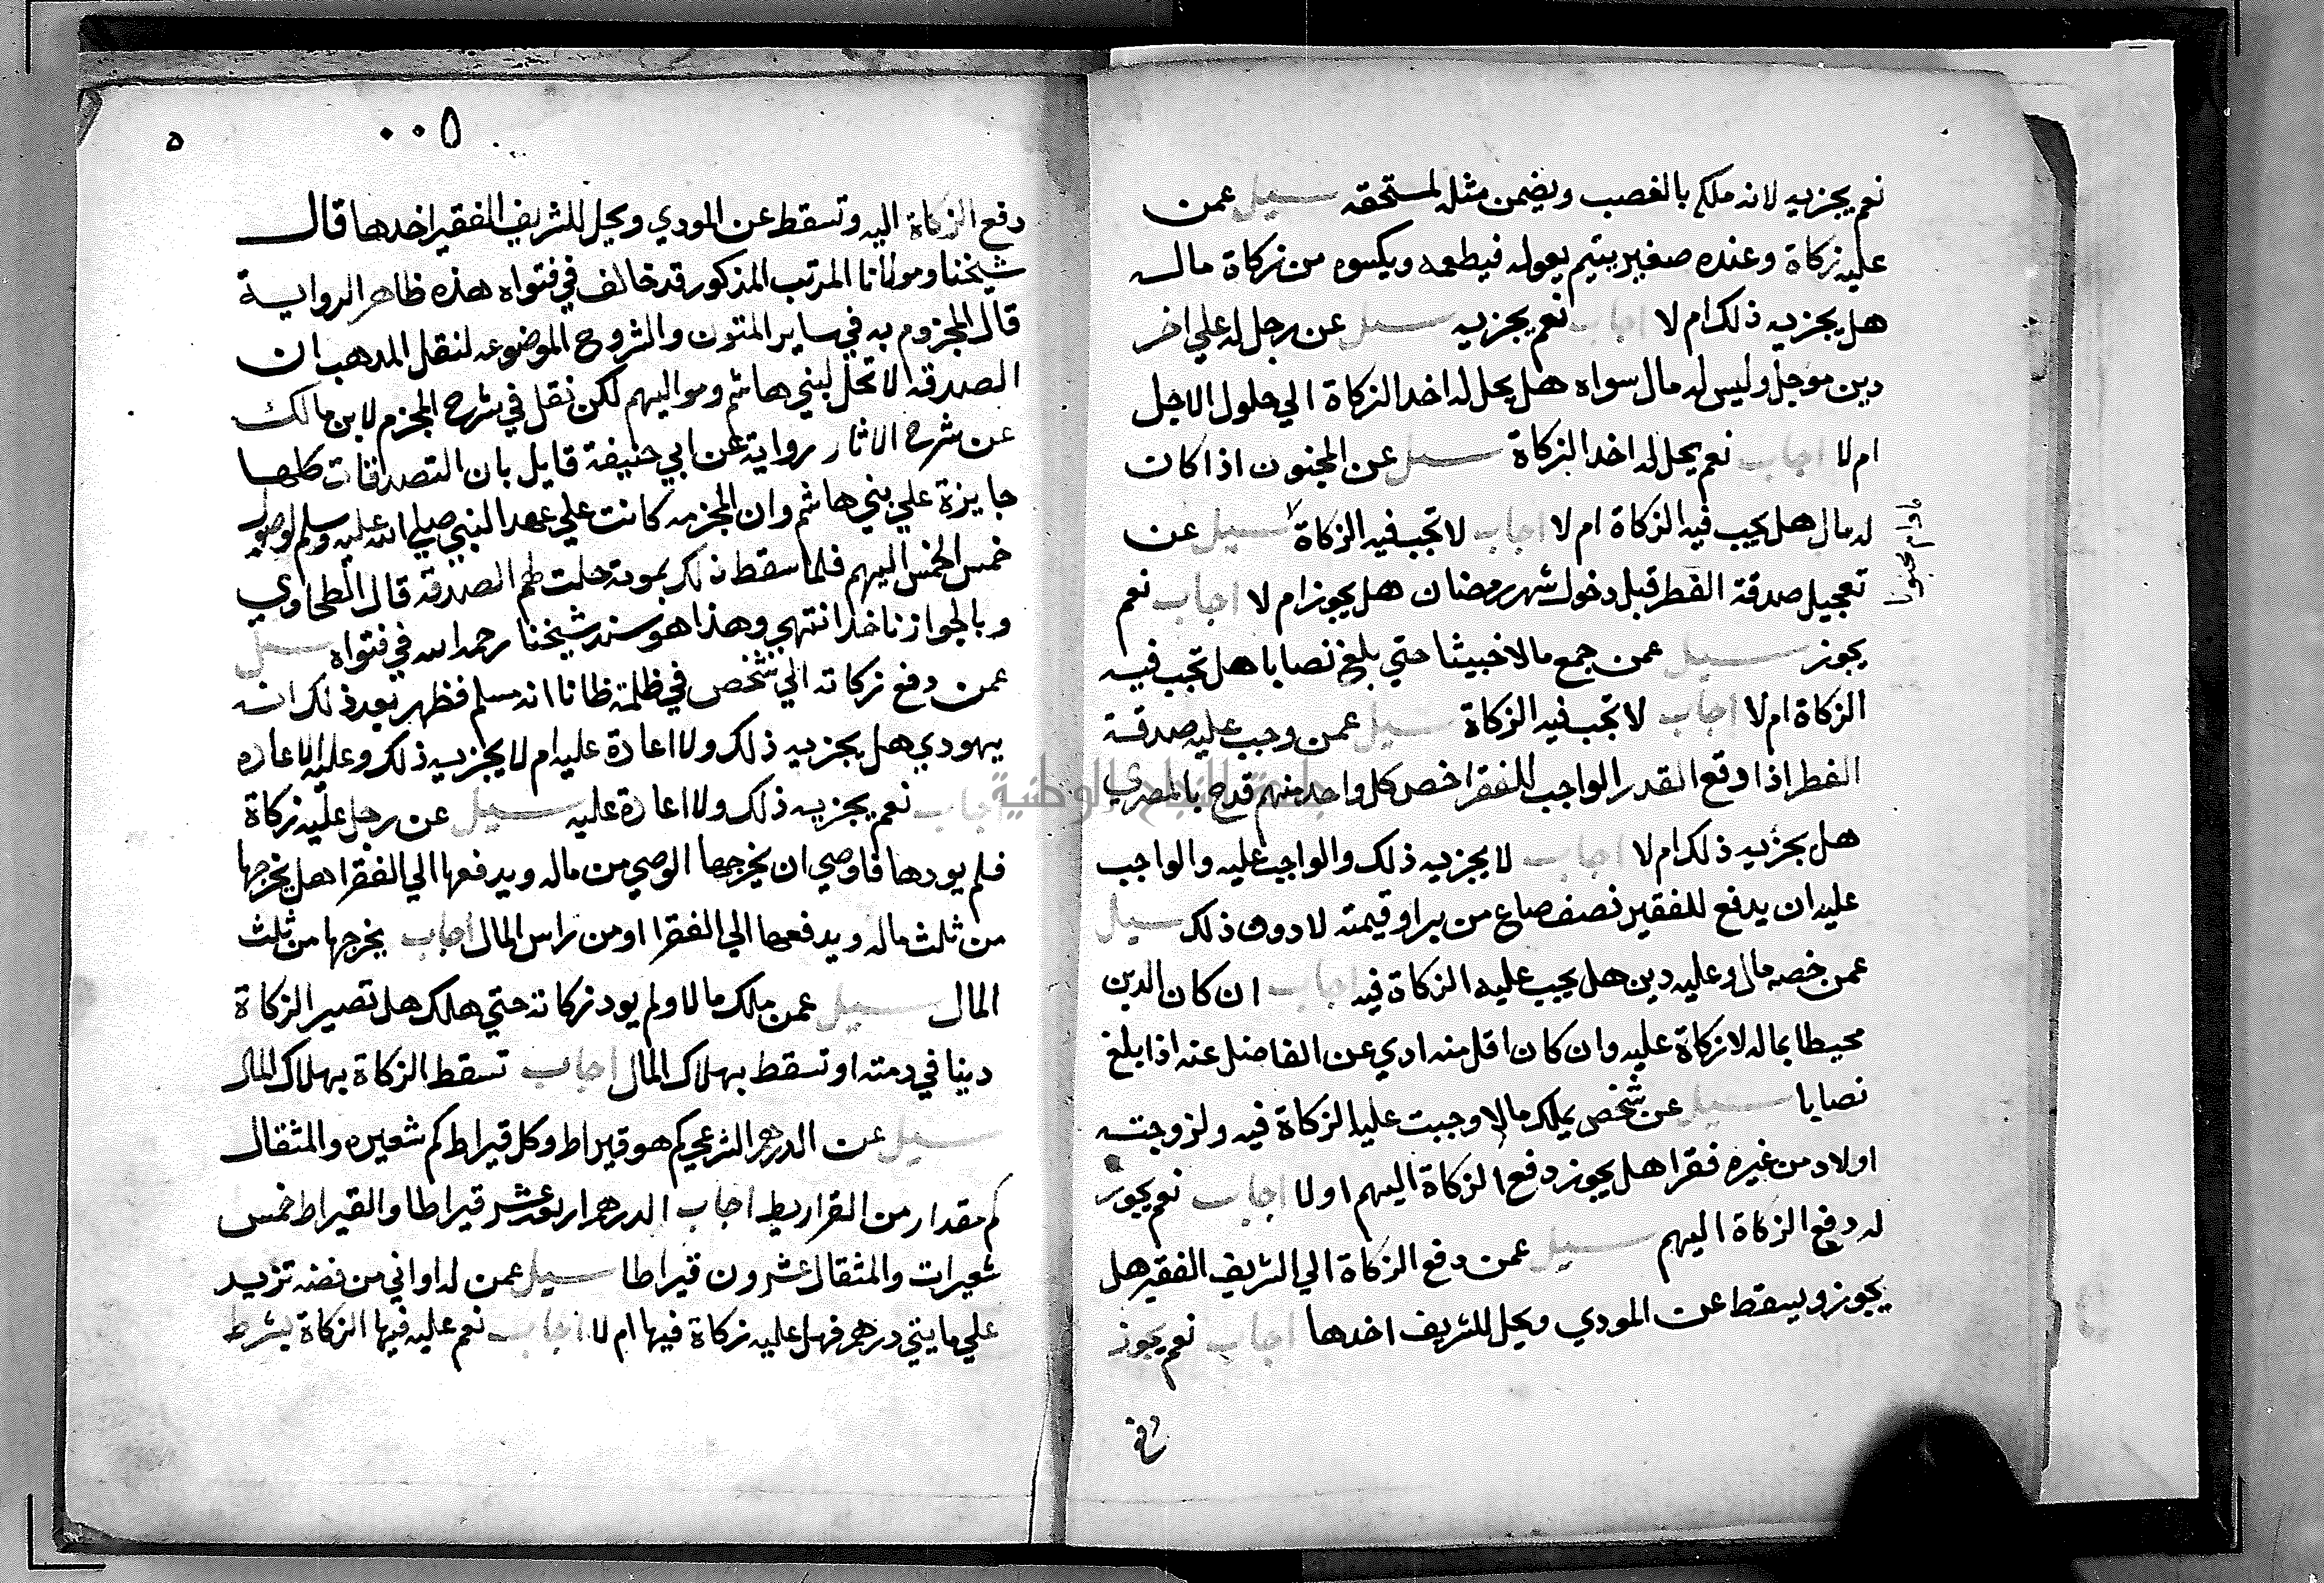 نعم يجزيه لانه ملكه بالغصب ويضمن مثله لمستحقه سيل عمن
عليه زكاة وعنده صغير يتيم يعوله فيطعمه ويكسوه من زكاة ماله
هل يجزيه ذلك ام لا اجاب نعم يجزيه سيل عن رجل له علي اخر
دين موجل وليس له مال سواه هل يحل له اخد الزكاة الي حلول الاجل
ام لا اجاب نعم يحل له اخد الزكاة سيل عن المجنون اذا كان
له مال هل يجب فيه الزكاة ام لا اجاب لا تجب فيه الزكاة سيل عن
مادام مجنونا
تعجيل صدقة الفطر قبل دخول شهر رمضان هل يجوز ام لا اجاب نعم
يجوز سيل عمن جمع مالا خبيثا حتي بلغ نصابا هل تجب فيه
الزكاة ام لا اجاب لا تجب فيه الزكاة سيل عمن وجب عليه صدقة
الفطر اذا وقع القدر الواجب للفقرا خص كل واحد منهم قدح بالمصري
هل يجزيه ذلك ام لا اجاب لا يجزيه ذلك والواجب عليه والواجب
عليه ان يدفع للفقير نصف صاع من بر او قيمته لا دون ذلك سيل
عمن خصه مال وعليه دين هل يجب عليه الزكاة فيه اجاب ان كان الدين
محيطا بماله لا زكاة عليه وان كان اقل منه ادي عن الفاضل عنه اذا بلغ
نصابا سيل عن شخص يملك مالا وجبت عليه الزكاة فيه ولزوجته
اولاد من غيره فقرا هل يجوز دفع الزكاة اليهم او لا اجاب نعم يجوز
له دفع الزكاة اليهم سيل عمن دفع الزكاة الي الشريف الفقير هل
يجوز ويسقط عن المودي ويحل للشريف اخدها اجاب نعم يجوز
دفع
٠٠٥
٥
دفع الزكاة اليه وتسقط عن المودي ويحل للشريف الفقير اخدها قال
شيخنا ومولانا المرتب المذكور قد خالف في فتواه هذه ظاهر الرواية
قال المجزوم به في ساير المتون والشروح الموضوعه لنقل المدهب ان
الصدقه لا تحل لبني هاشم ومواليهم لكن نقل في شرح المجزم لابن مالك
عن شرح الاثار رواية عن ابي حنيفة قايل بان التصدقات كلها
جايزة علي بني هاشم وان الحرمه كانت علي عهد النبي صلي الله عليه وسلم لوصول
خمس الخمس اليهم فلما سقط ذلك بموته حلت لهم الصدقة قال الطحاوي
وبالجواز ناخد انتهي وهذا هو سند شيخنا رحمه الله في فتواه سيل
عمن دفع زكاته الي شخص في ظلمة ظانا انه مسلم فظهر بعد ذلك انه
يهودي هل يجزيه ذلك ولا اعادة عليه ام لا يجزيه ذلك وعليه الاعاده
اجاب نعم يجزيه ذلك ولا اعادة عليه سيل عن رجل عليه زكاة
فلم يودها فاوصي ان يخرجها الوصي من ماله ويدفعها الي الفقرا هل يخرجها
من ثلث ماله ويدفعها الي الفقرا او من راس المال اجاب يخرجها من ثلث
المال سيل عمن ملك مالا ولم يود زكاته حتي هلك هل تصير الزكاة
دينا في دمته او تسقط بهلاك المال اجاب تسقط الزكاة بهلاك المال
سيل عن الدرهم الشرعي كم هو قيراط وكل قيراط كم شعيره والمثقال
كم مقدار من القراريط اجاب الدرهم اربعة عشر قيراطا والقيراط خمس
شعيرات والمثقال عشرون قيراطا سيل عمن له اواني من فضه تزيد
علي مايتي درهم فهل عليه زكاة فيها ام لا اجاب نعم عليه فيها الزكاة بشرط
جامعة النجاح الوطنية